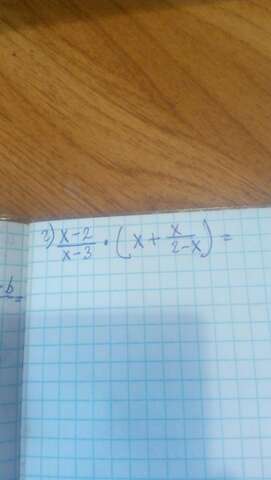 г) \frac{x-2}{x-3} · (x + \frac{x}{2-x}) =